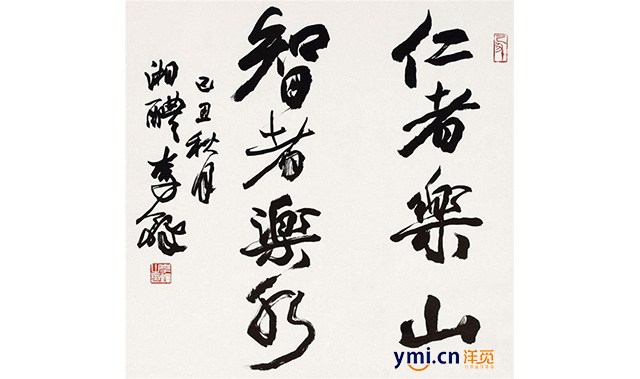 仁者樂山
智者樂水
己丑秋月
湘醴李鐸
ymi.cn 洋觅